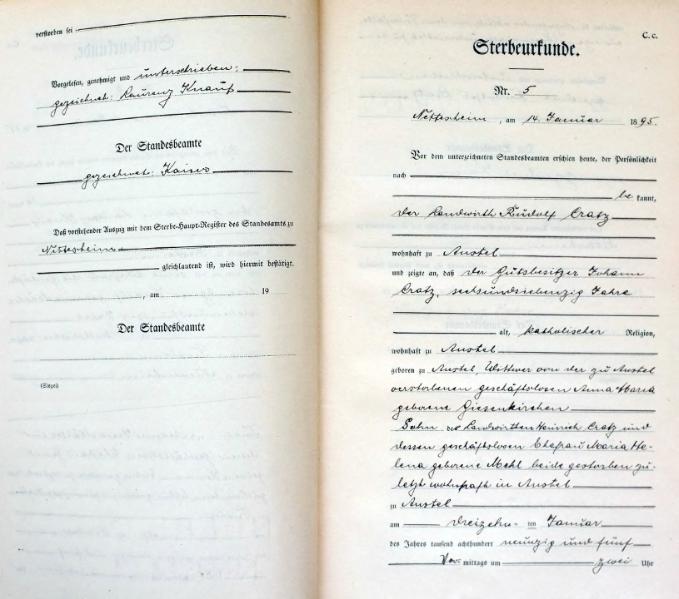 verstorben sei
Vorgelesen, genehmigt und unterschrieben:
gezeichnet: Laurenz Knauf
Der Standesbeamte
gezeichnet: Kaiser
Daß vorstehender Auszug mit dem Sterbe-Haupt-Register des Standesamts zu
Nettesheim
gleichlautend ist, wird hiermit bestätigt.
, am 19
Der Standesbeamte
(Siegel)
C. c.
Sterbeurkunde.
Nr. 5
Nettesheim, am 14. Januar 1895.
Vor dem unterzeichneten Standesbeamten erschien heute, der Persönlichkeit
nach
be kannt,
der Landwirth Rudolf Cratz
wohnhaft zu Anstel
und zeigte an, daß der Gutsbesitzer Johann
Cratz, sechsundsiebenzig Jahre
alt, katholischer Religion,
wohnhaft zu Anstel
geboren zu Anstel, Wittwer von der zu Anstel
verstorbenen geschäftslosen Anna Maria
geborene Giesenkirchen
Sohn des Landwirthen Heinrich Cratz und
dessen geschäftslosen Ehefrau Maria He-
lena geborene Mehl beide gestorben zu-
letzt wohnhaft in Anstel
zu Anstel
am dreizehn- ten Januar
des Jahres tausend achthundert neunzig und fünf
Vor mittags um zwei Uhr